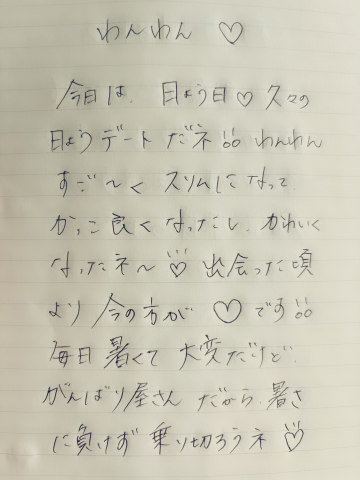 わんわん ♡
今日は、日よう日♡久々の
日ようデートだネ!! わんわん
すご〜く スリムになって
かっこ良くなったし、かわいく
なったネ〜♡ 出会った頃
より今の方が ♡です!!
毎日暑くて大変だけど、
がんばり屋さんだから、暑さ
に負けず乗り切ろうネ♡